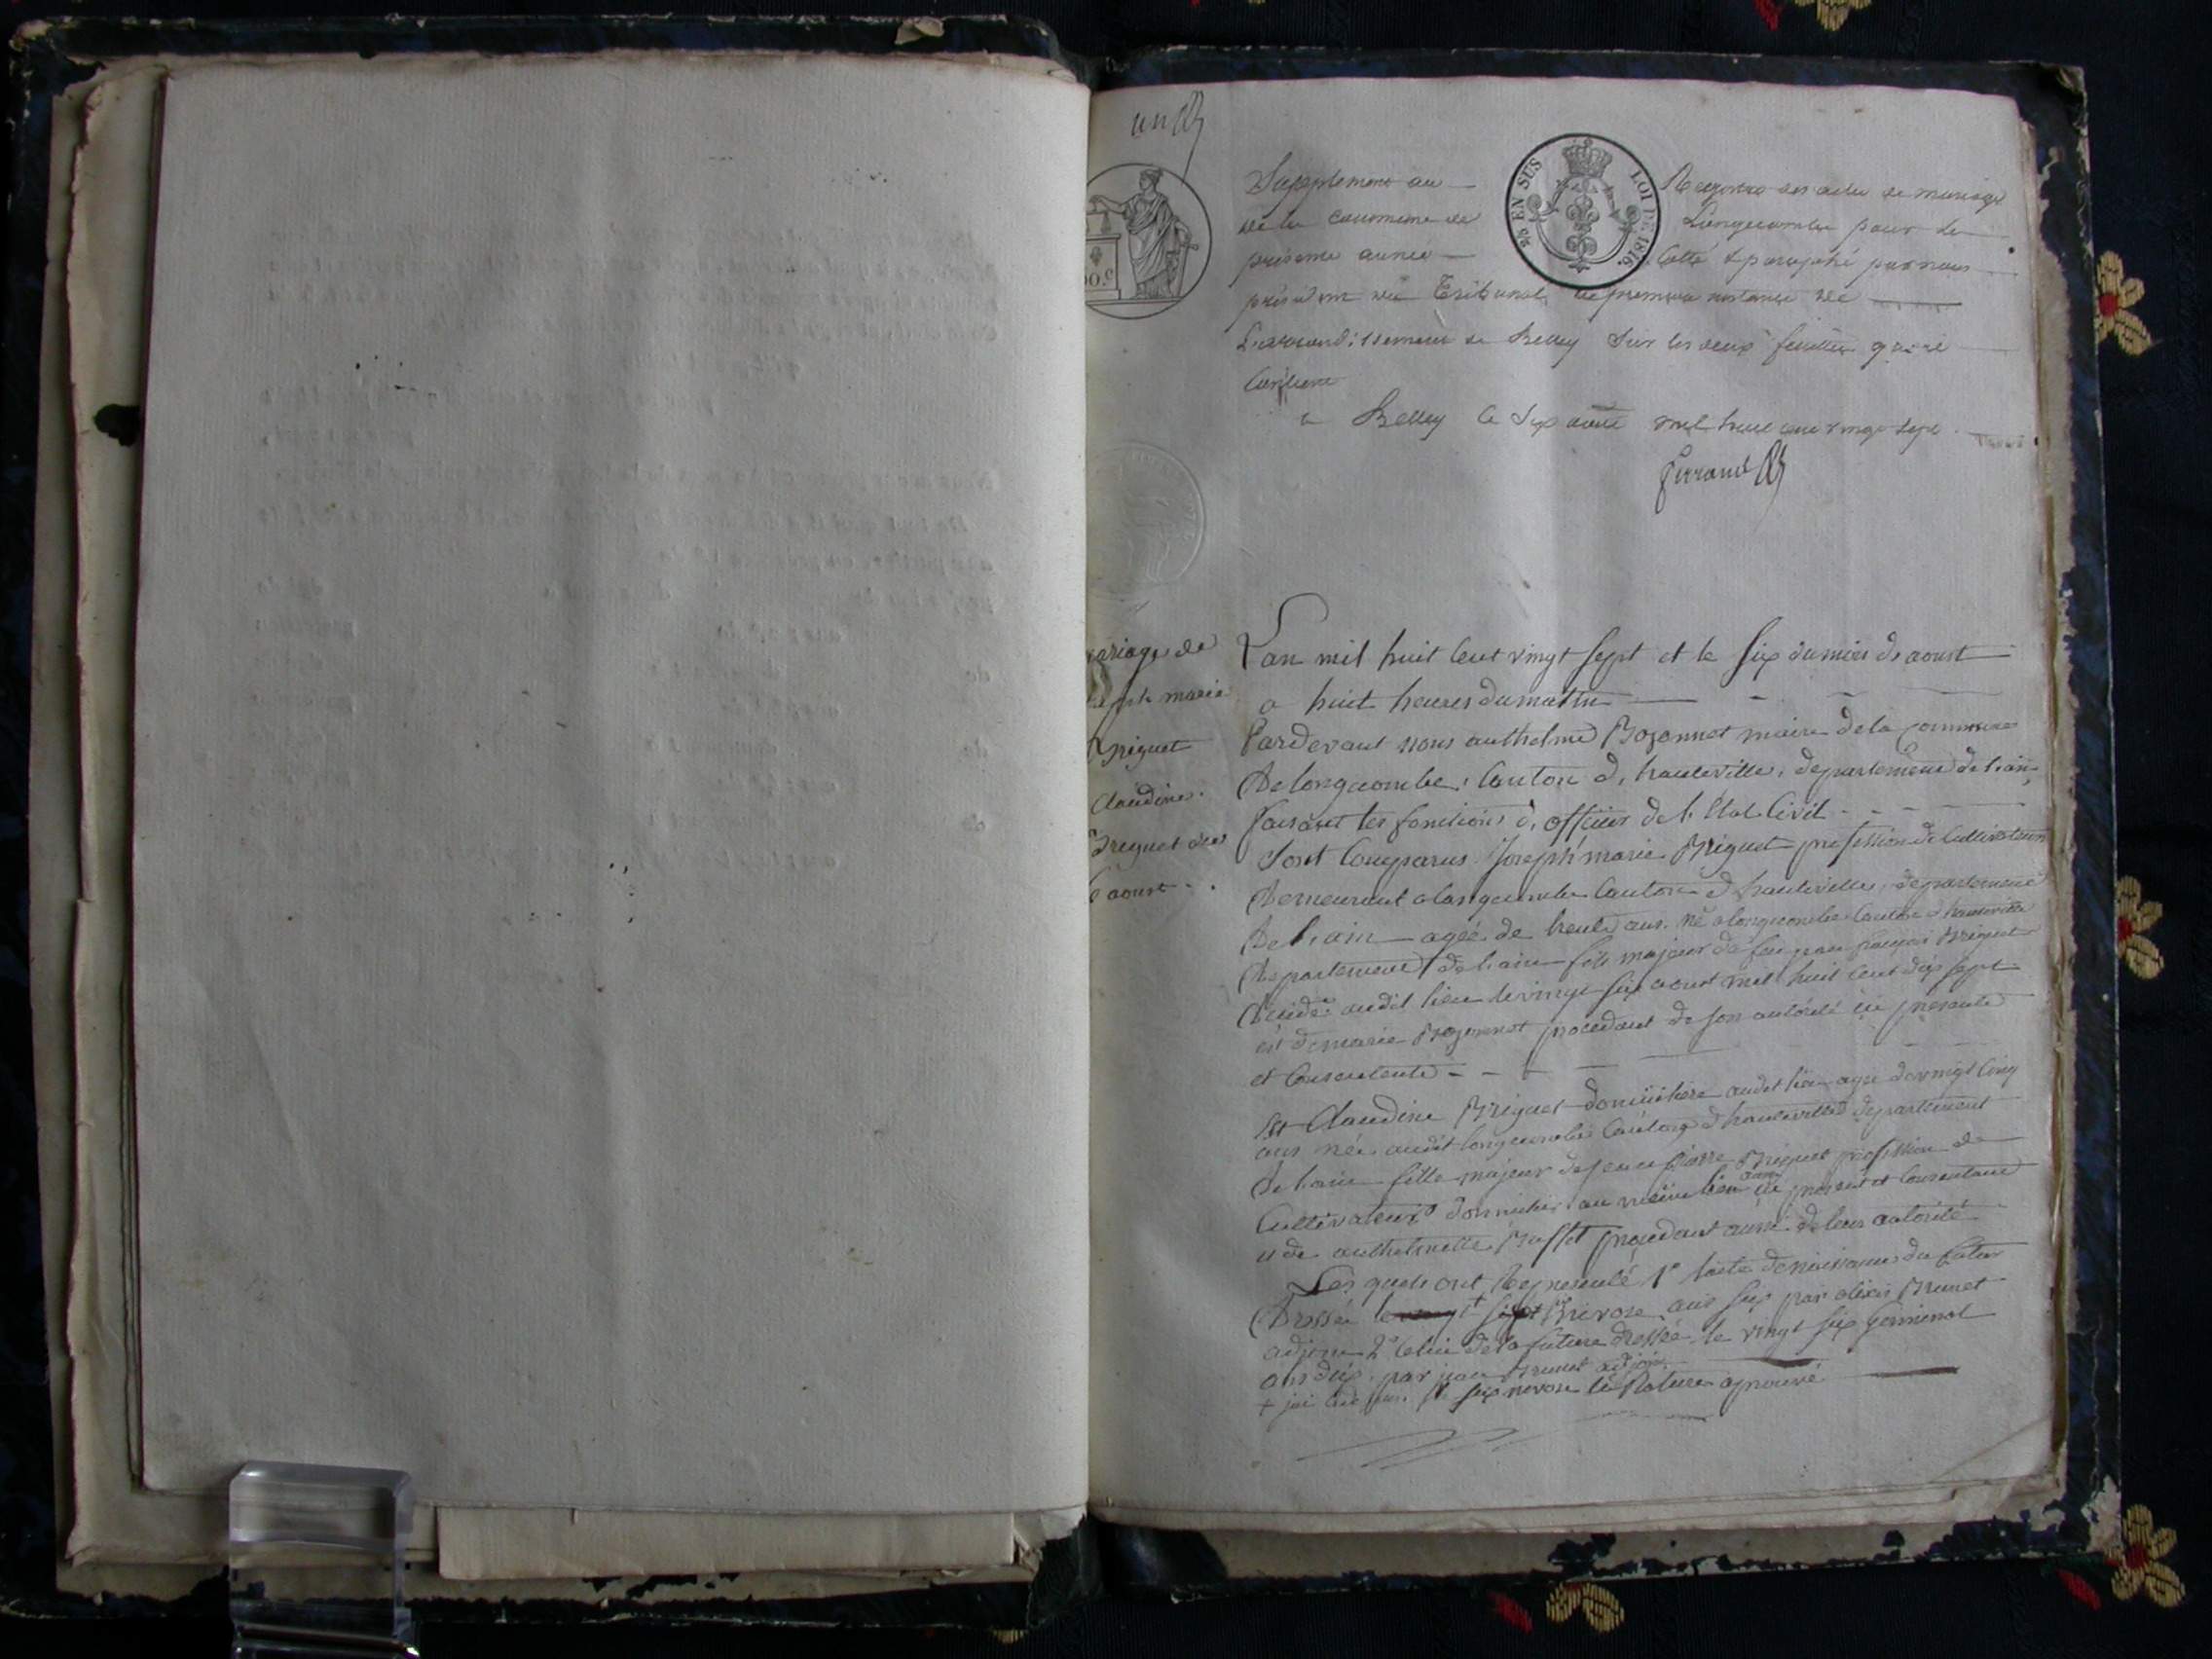 un
25 EN SUS
LOI DE 1816.
Supplement au Registre des actes de mariage
de la Commune de Longecombe pour la
présente année Cotté & paraphé par nous
président du Tribunal de premiere instance de
L'arrondissement de Belley sur les deux feuillets qu'il
Contient
a Belley le six aout mil huit cent vingt sept
Ferrand
mariage de
joseph marie
Briguet
Claudine
Briguet du
6 aoust
L'an mil huit Cent vingt sept et le six du mois d'aoust
a huit heures du mattin
Pardevant nous anthelme Bozonnet maire de la Commune
De longecombe, Canton d, hauteville, departement de l'ain,
faisant les fonctions d, officier de l, Etat Civil
Sont Comparus Joseph marie Briguet profession de Cultivateur
Demeurant a longecombe Canton d hauteville, departement
De l, ain agée de trente ans né a longecombe Canton d hauteville
Departement de l'ain fils majeur de feu jean françois Briguet
Décidé audit lieu le vingt six aoust mil huit Cent dix sept
et de marie Bozonnet procédant de son autorité ici présente
et Consentente
Et Claudine Briguet domicilière audit lieu agée de vingt Cinq
ans née audit longecombe Canton d hauteville departement
De l'ain fille majeur de jean pierre Briguet profession de
Cultivateur domicilié au meme lieu ici présent et Consentant
et de anthelmette Busset procedant aussi de leur autorité
Les quels ont Représenté 1° l'acte de naissance du futur
Dressée le Nivose an six par alexis Brunet
adjoin 2° Celui de la future dressée le vingt six Germinal
an dix par jean Brunet adjoin
+ six nivose la Rature aprouvé